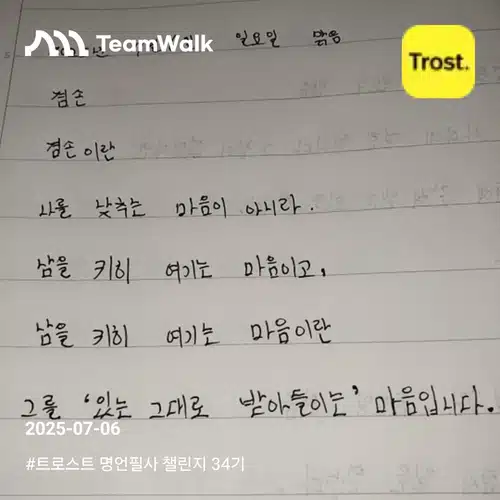 TeamWalk
Trost.
일요일 맑음
겸손
겸손이란
나를 낮추는 마음이 아니라.
삼을 키히 여기는 마음이고,
삼을 키히 여기는 마음이란
그를 '있는 그대로 받아들이는' 마음입니다.
2025-07-06
#트로스트 명언필사 챌린지 34기